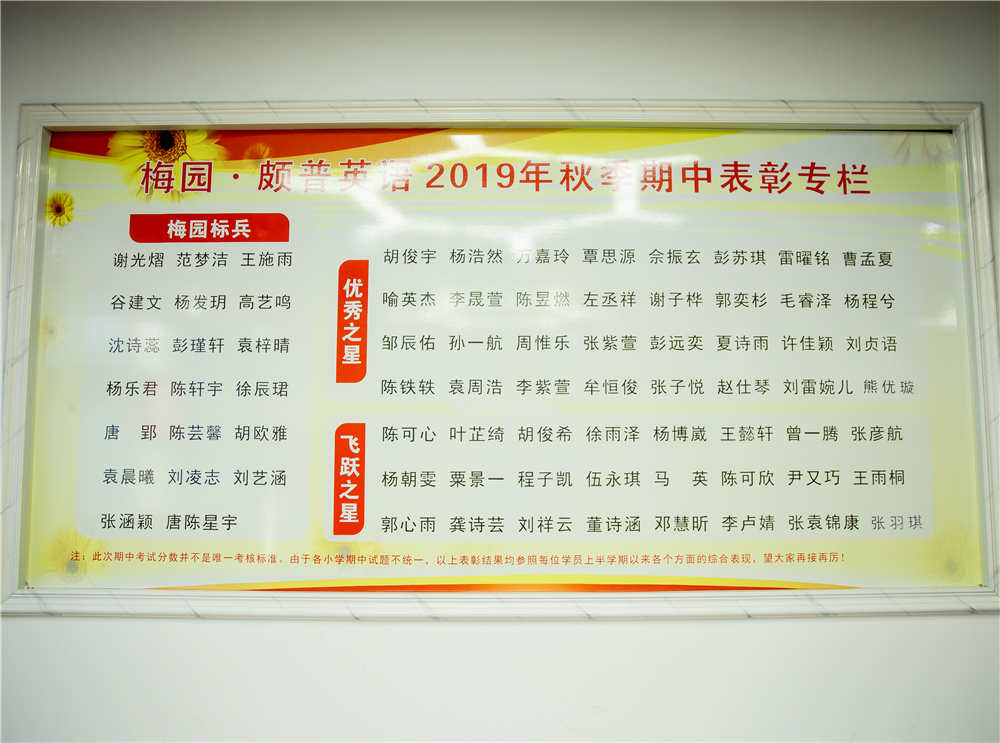 梅园·颇普英语 2019年秋季期中表彰专栏
梅园标兵
谢光熠 范梦洁 王施雨
谷建文 杨发玥 高艺鸣
沈诗蕊 彭瑾轩 袁梓晴
杨乐君 陈轩宇 徐辰珺
唐 郢 陈芸馨 胡欧雅
袁晨曦 刘凌志 刘艺涵
张涵颖 唐陈星宇
优秀之星
胡俊宇 杨浩然 万嘉玲 覃思源 佘振玄 彭苏琪 雷曜铭 曹孟夏
喻英杰 李晟萱 陈昱燃 左丞祥 谢子桦 郭奕杉 毛睿泽 杨程兮
邹辰佑 孙一航 周惟乐 张紫萱 彭远奕 夏诗雨 许佳颖 刘贞语
陈铁轶 袁周浩 李紫萱 牟恒俊 张子悦 赵仕琴 刘雷婉儿 熊优璇
飞跃之星
陈可心 叶芷绮 胡俊希 徐雨泽 杨博崴 王懿轩 曾一腾 张彦航
杨朝雯 粟景一 程子凯 伍永琪 马 英 陈可欣 尹又巧 王雨桐
郭心雨 龚诗芸 刘祥云 董诗涵 邓慧昕 李卢婧 张袁锦康 张羽琪
注：此次期中考试分数并不是唯一考核标准。由于各小学期中试题不统一，以上表彰结果均参照每位学员上半学期以来各个方面的综合表现，望大家再接再厉！